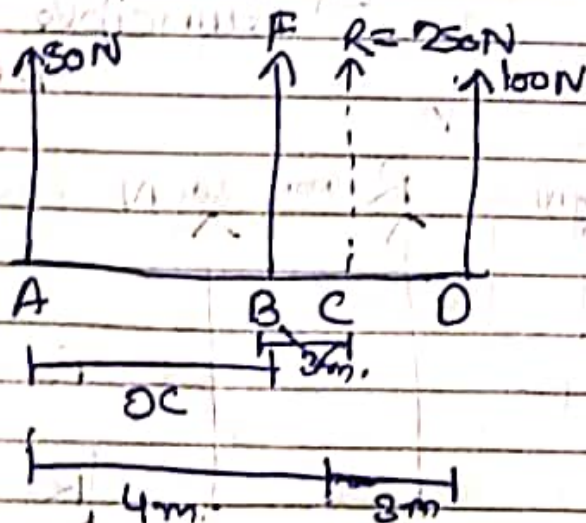 50N F R = 250N 100N
A B C D
3m.
x
4m. 3m